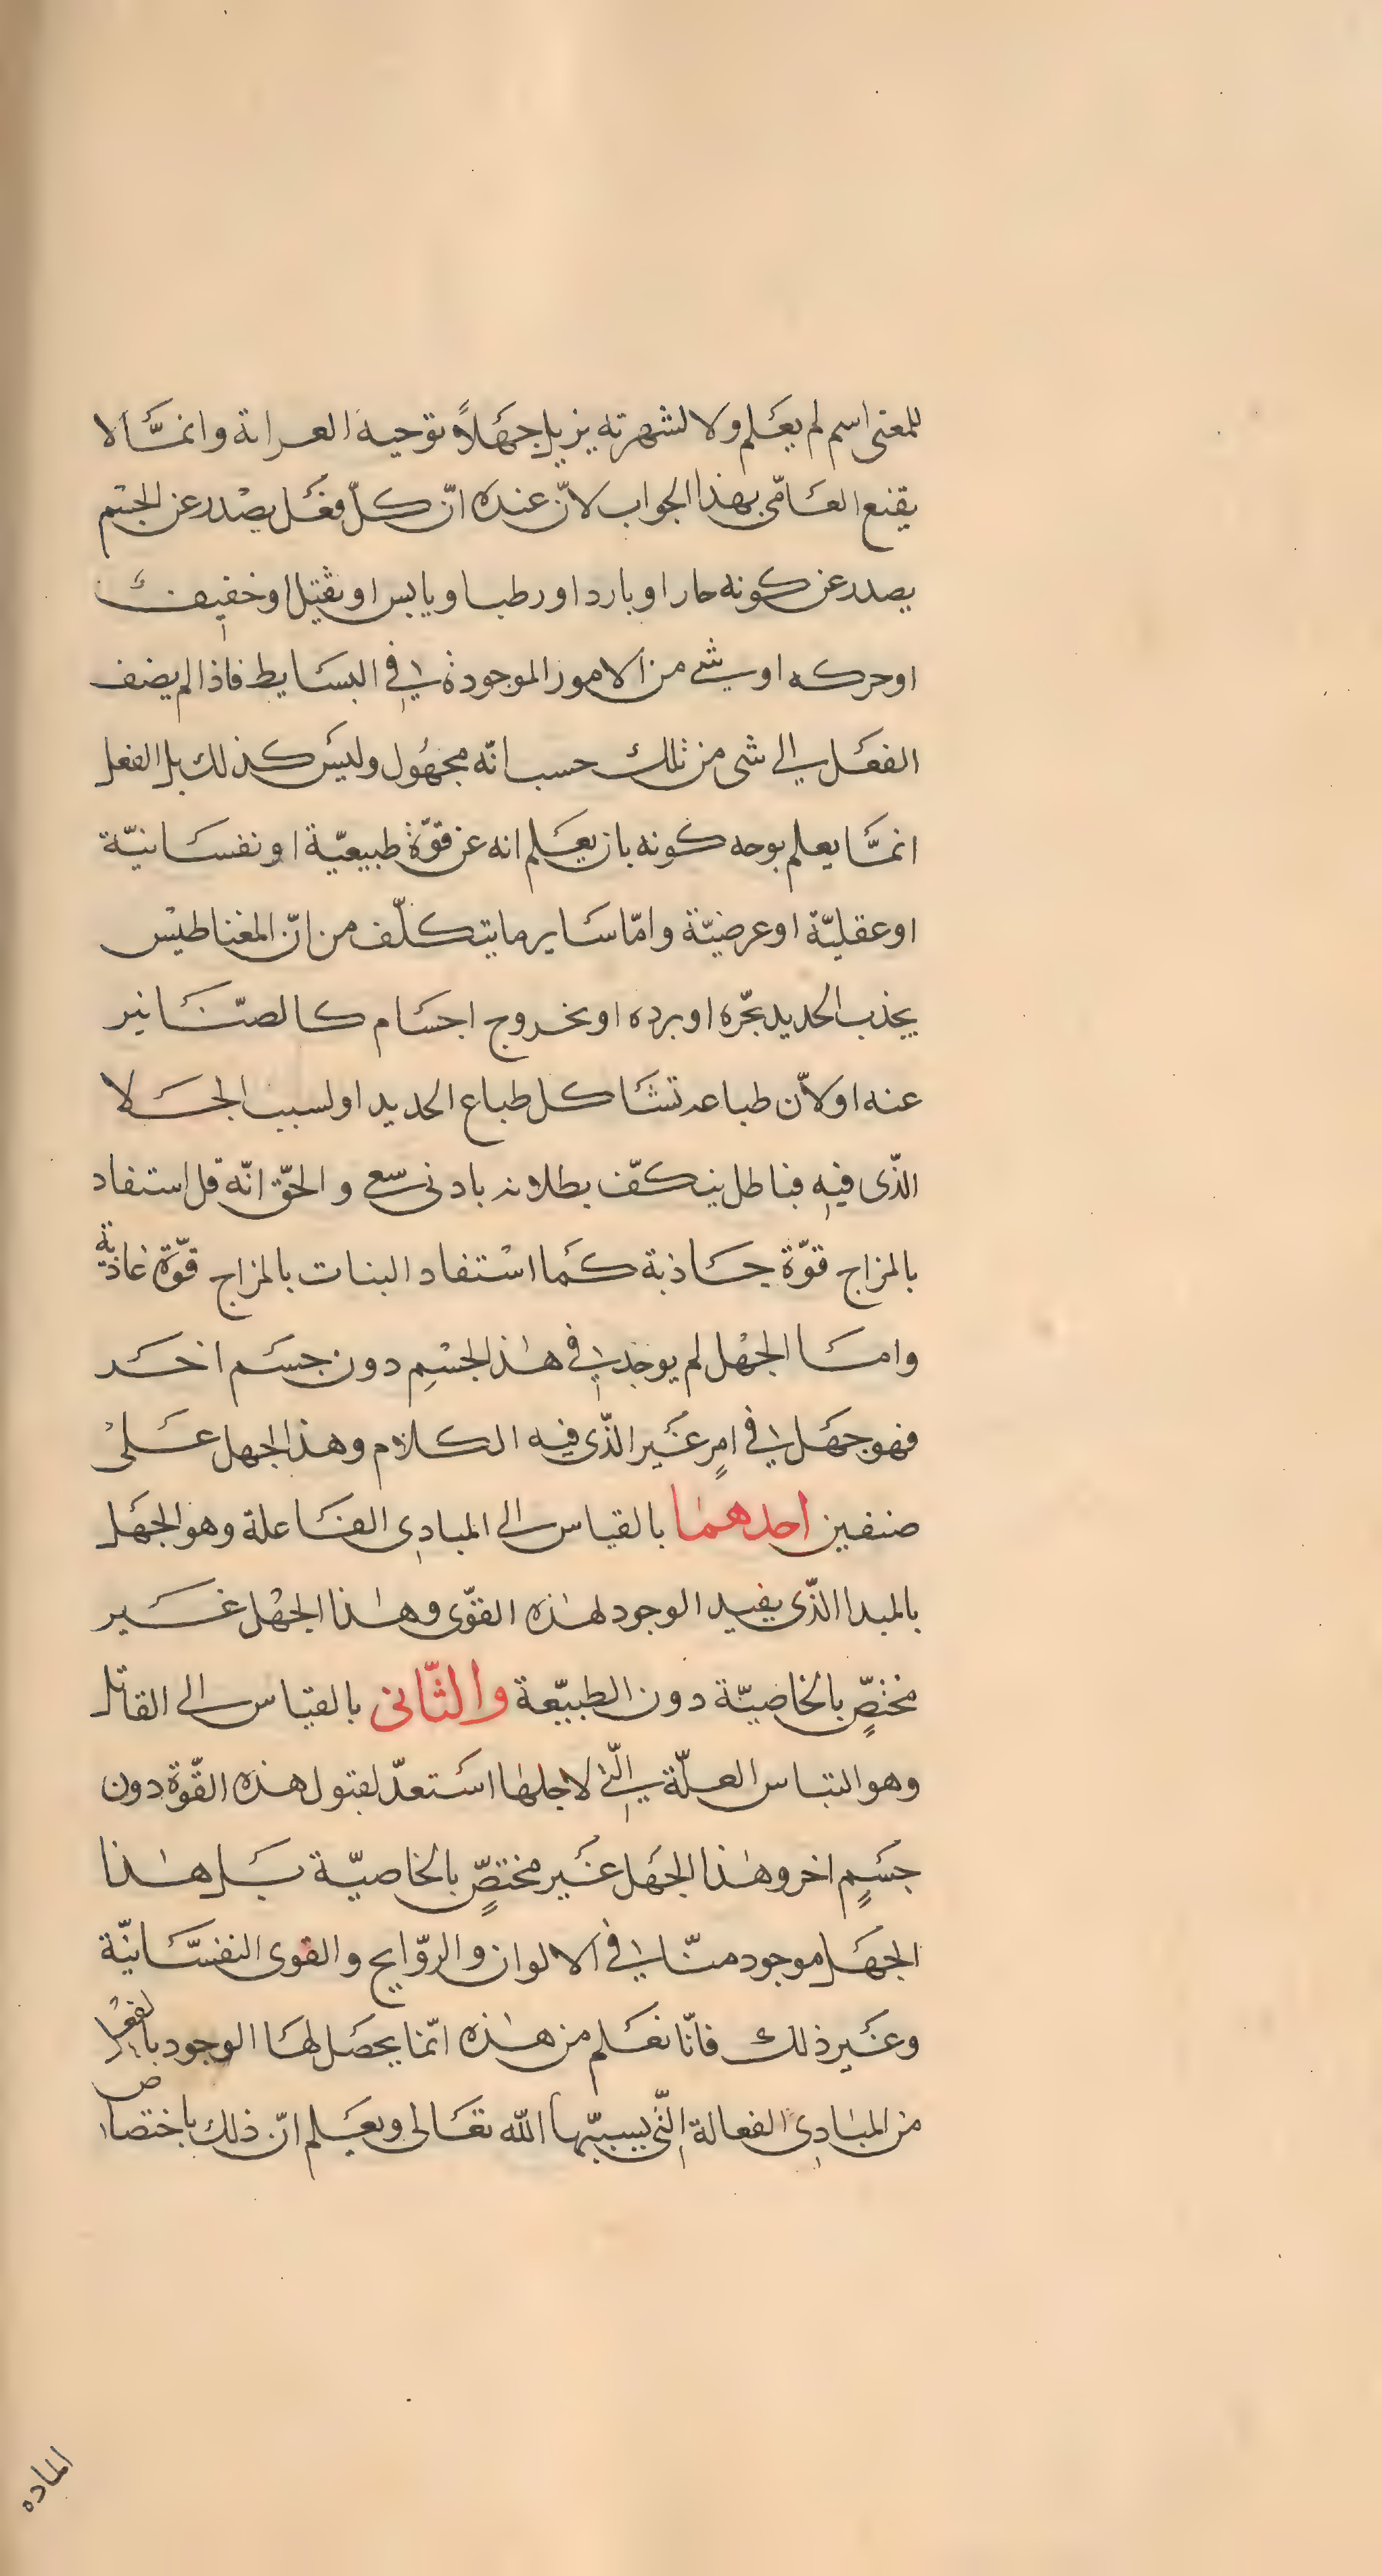 للمعنى اسم لم يعلم ولا لشهرته يزيل جهلاً توجيه العرابة وانمَّا لا
يقنع العامّى بهذا الجواب لانّ عنده انّ كلّ فعل يصْدر عن الجسْم
يصدر عن كونه حارا و بارد اورطبا و يابس او ثقيل او خفيف
او حركه او شى من الامور الموجودة فى البسايط فاذا لم يضف
الفعل الى شى من تلك حسب انّه مجهُول وليس كذلك بل الفعل
انمَّا يعلم بوجه كونه بان يعلم انه عن قوّة طبيعيّة او نفسانيّة
او عقليّة او عرضيّة وامّا ساير ما يتكلّف من انّ المغناطيْس
يجذب الحديد بحّره او برده او بخروج اجسام كالصّنانير
عنه او لانّ طباعه تشاكل طباع الحديد او لسبب الخلا
الذّى فيه فباطل ينكشّف بطلانه بادنى سعى والحقّ انّه قد استفاد
بالمزاج قوّة جاذبة كما اسْتفاد النبات بالمزاج قوّة غاذيّة
وامّا الجهْل لم يوجد فى هذا الجسْمِ دون جسم اخر
فهو جهل فى امرٍ غير الذّى فيه الكلام وهذا الجهل على
صنفين احدهما بالقياس الى المبادى الفاعلة وهو الجهل
بالمبدا الذّى يفيد الوجود لهذه القوّى وهذا الجهْل غير
مختصٍّ بالخاصيّة دون الطبيّعة والثّانى بالقياس الى القابل
وهو التباس العلّة الّتى لاجلها استعدّ لقبول هذه القّوّة دون
جسمٍ اخر وهذا الجهل غير مختصٍّ بالخاصيّة بل هذا
الجهل موجود منّا فى الالوان والروّايح والقوى النفسّانيّة
وغير ذلك فانّا نعلم من هذه انّما يحصل لها الوجود بالفعْل
من المبادى الفعالة التّى يسببّها الله تعالى ويعلم انّ ذلك باختصاص
الماده